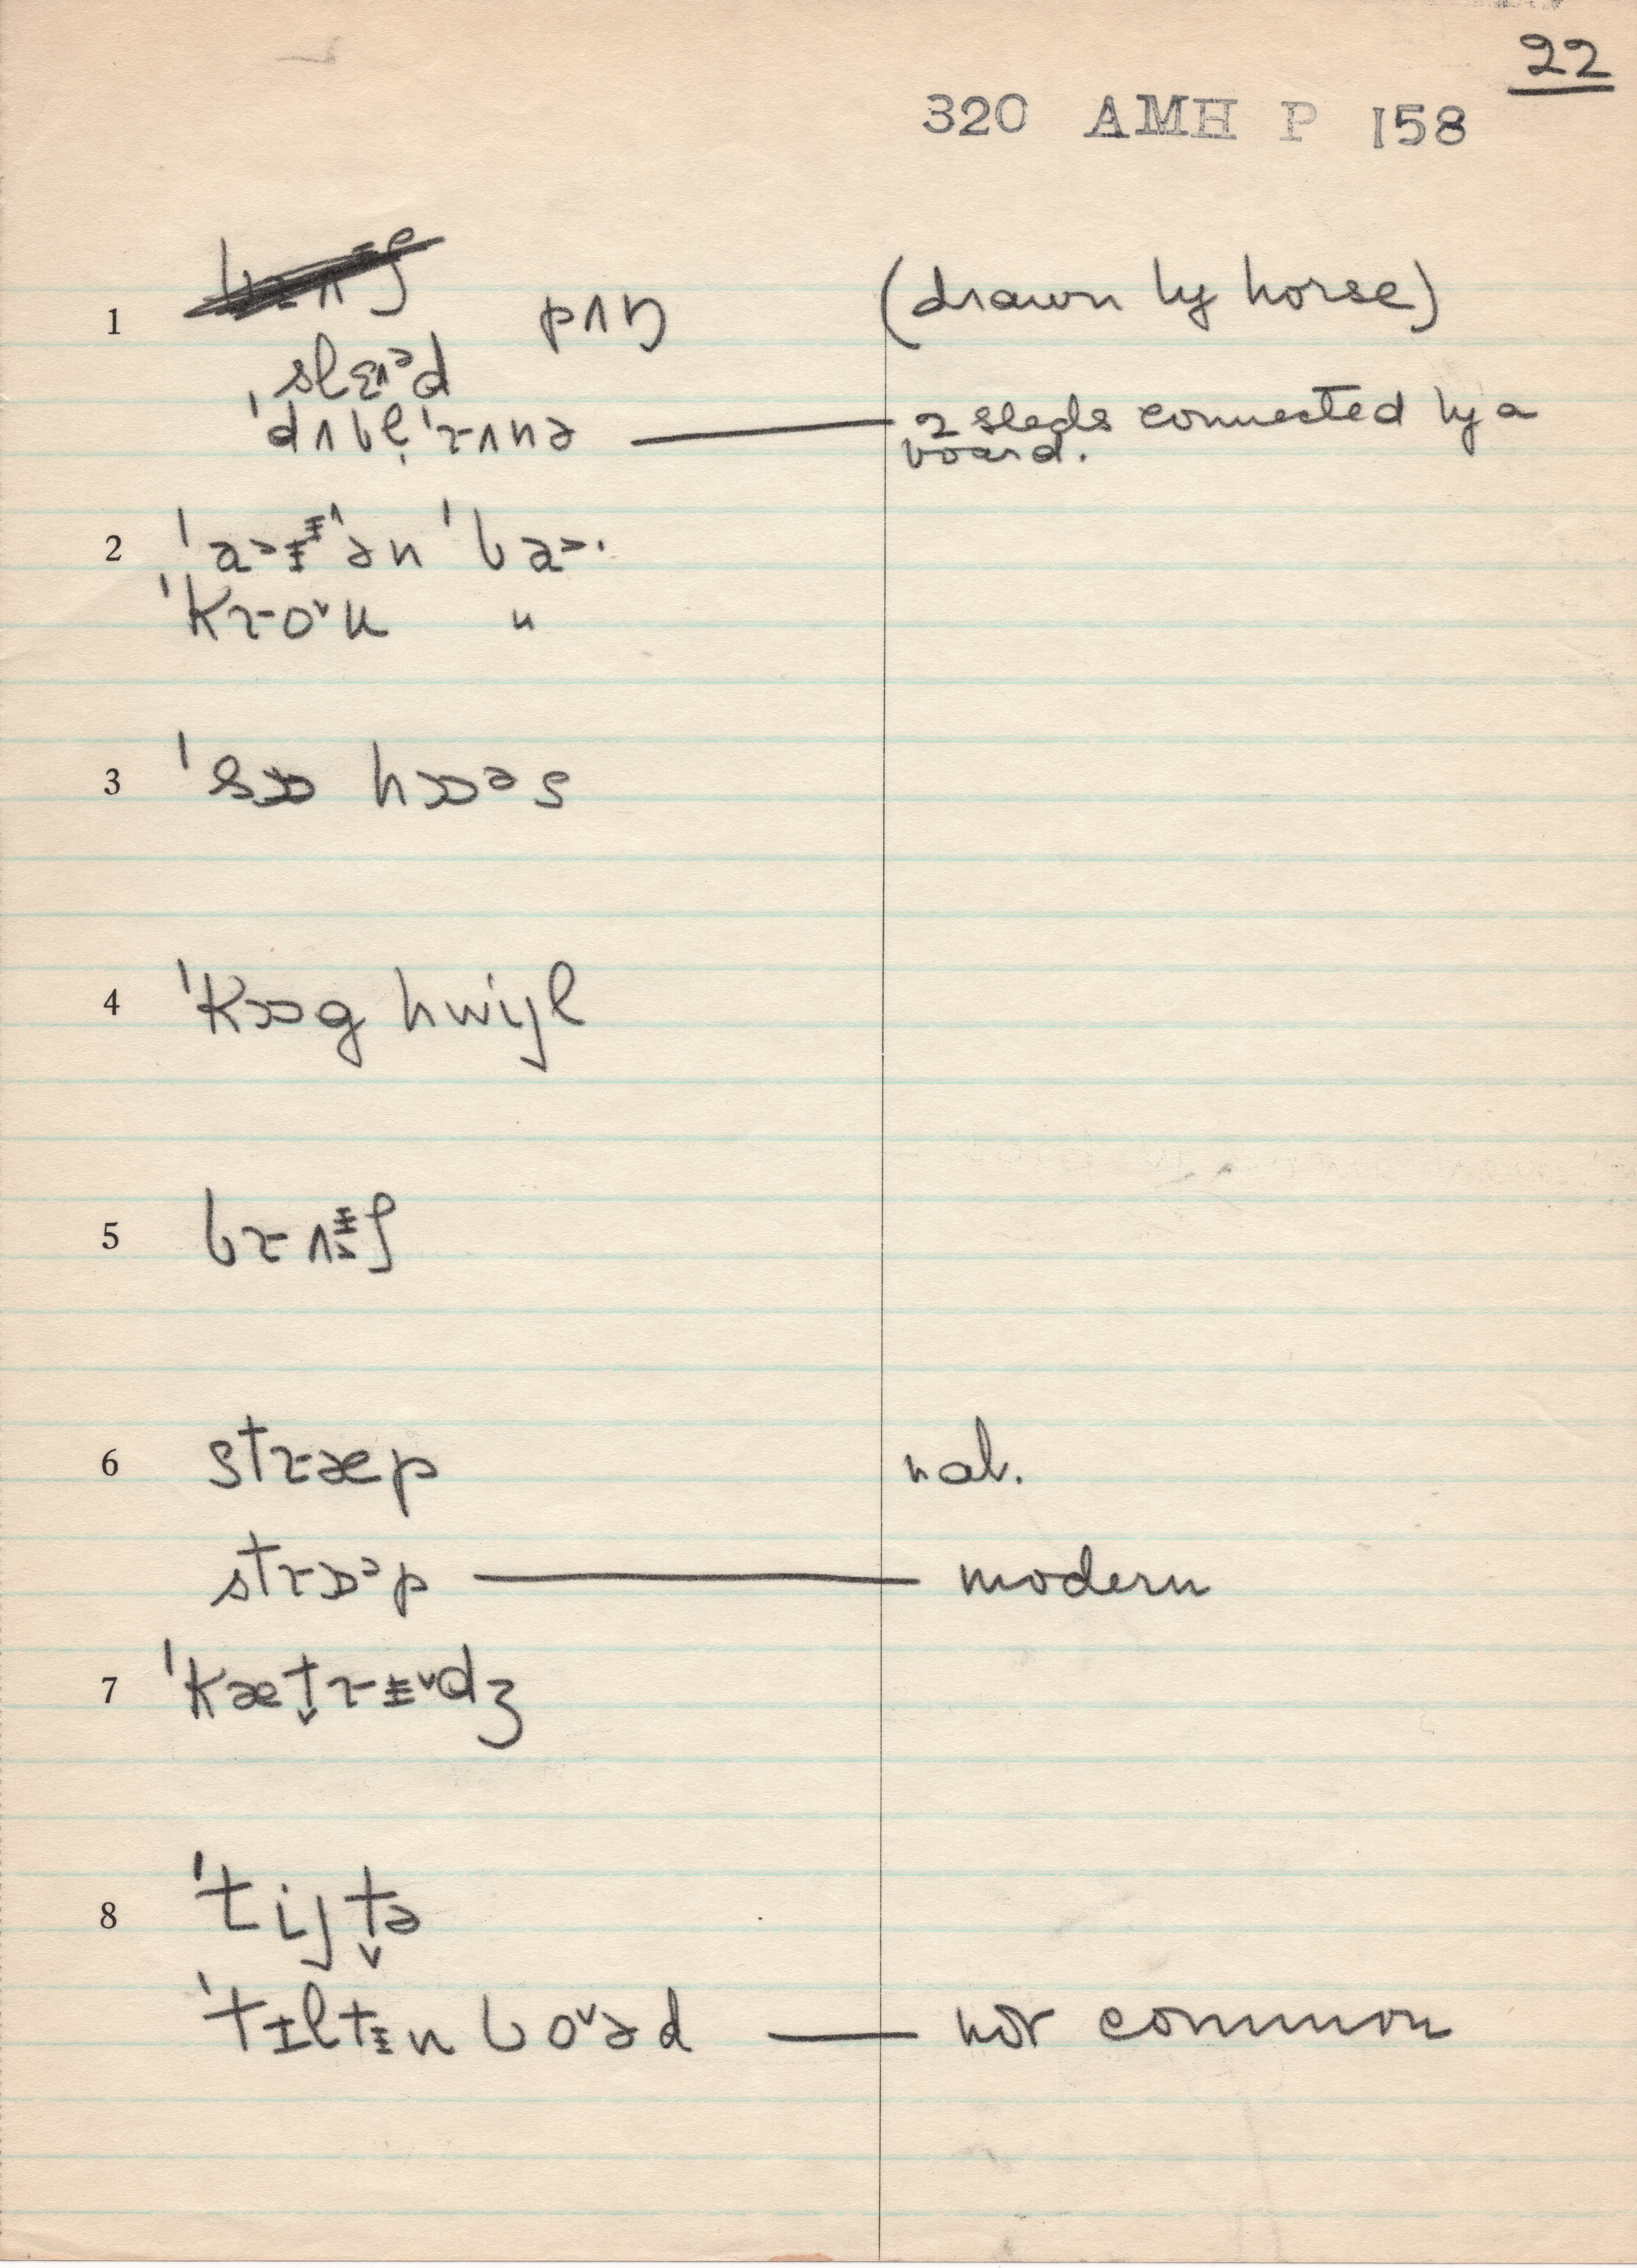 22
320 AMH P 158
1 pʌŋ (drawn by horse)
slɛʌᵊd
ˈdʌbl̩ˌɹʌnə — 2 sleds connected by a
board.
2 ən ˈba
ˈkɹoˇu "
3 ˈsɒ hɒᵊs
4 ˈkɒg hwijl
5
6 stɹæp nat.
stɹɒᵊp — modern
7 ˈkæt̬ɹɪˇdʒ
8 ˈtijt̬ə
ˈtɪltɪn boˇəd — not common